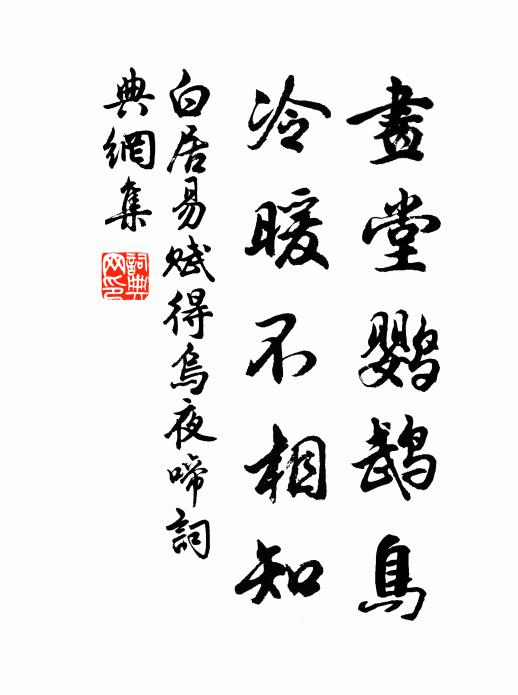 畫堂鸚鵡鳥
冷暖不相知
白居易賦得烏夜啼詞
典網集
詞典网印